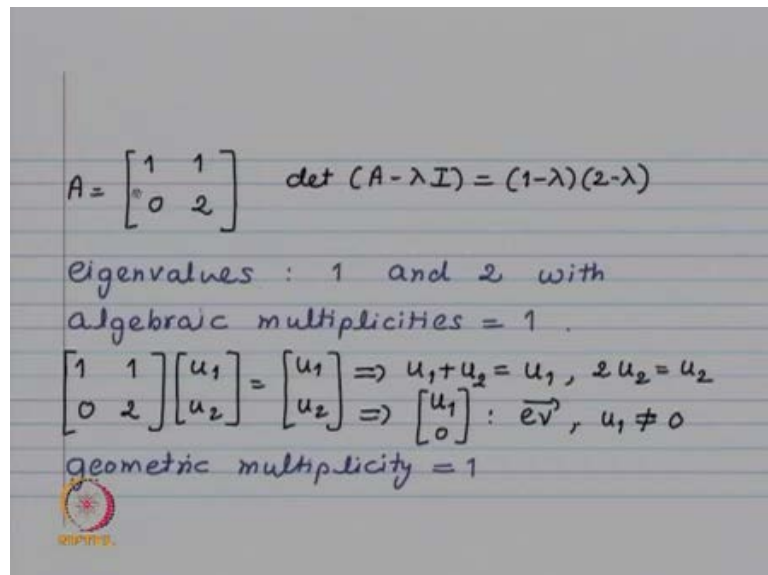 A = [1 1; 0 2] det (A - λI) = (1-λ)(2-λ)
eigenvalues : 1 and 2 with
algebraic multiplicities = 1.
[1 1; 0 2] [u₁; u₂] = [u₁; u₂] ⇒ u₁+u₂ = u₁, 2u₂ = u₂
⇒ [u₁; 0] : ev⃗, u₁ ≠ 0
geometric multiplicity = 1